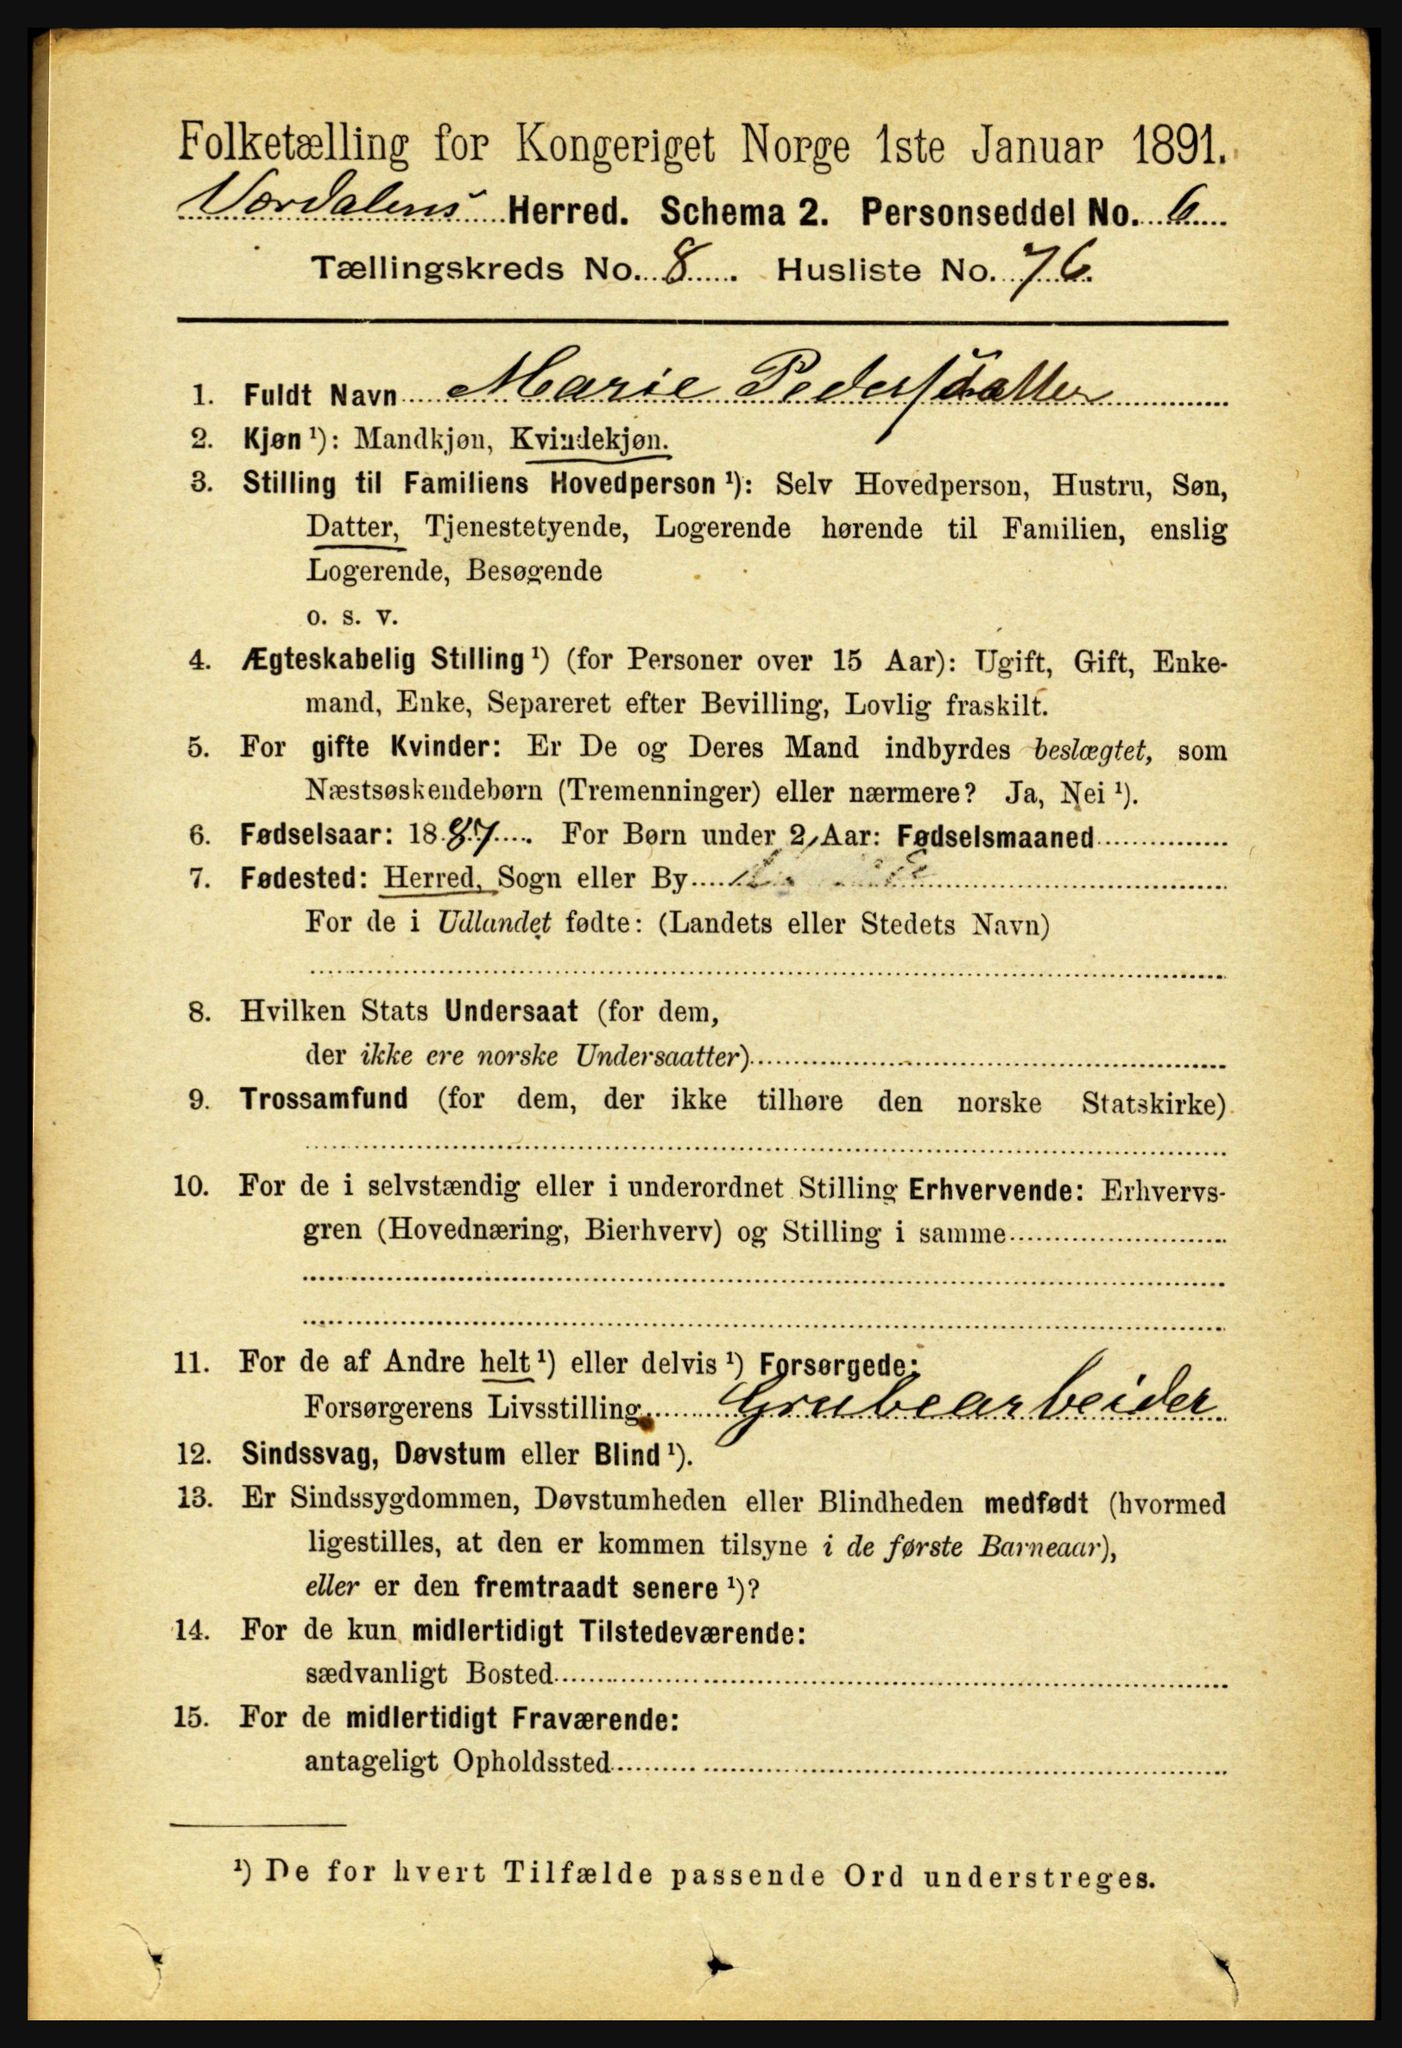 Folketælling for Kongeriget Norge 1ste Januar 1891.
Værdalens Herred. Schema 2. Personseddel No. 6
Tællingskreds No. 8. Husliste No. 76.
1. Fuldt Navn Marie Pedersdatter
2. Kjøn ¹): Mandkjøn, Kvindekjøn.
3. Stilling til Familiens Hovedperson ¹): Selv Hovedperson, Hustru, Søn,
Datter, Tjenestetyende, Logerende hørende til Familien, enslig
Logerende, Besøgende
o. s. v.
4. Ægteskabelig Stilling ¹) (for Personer over 15 Aar): Ugift, Gift, Enke-
mand, Enke, Separeret efter Bevilling, Lovlig fraskilt.
5. For gifte Kvinder: Er De og Deres Mand indbyrdes beslægtet, som
Næstsøskendebørn (Tremenninger) eller nærmere? Ja, Nei ¹).
6. Fødselsaar: 1887. For Børn under 2 Aar: Fødselsmaaned
7. Fødested: Herred, Sogn eller By
For de i Udlandet fødte: (Landets eller Stedets Navn)
8. Hvilken Stats Undersaat (for dem,
der ikke ere norske Undersaatter)
9. Trossamfund (for dem, der ikke tilhøre den norske Statskirke)
10. For de i selvstændig eller i underordnet Stilling Erhvervende: Erhvervs-
gren (Hovednæring, Bierhverv) og Stilling i samme
11. For de af Andre helt ¹) eller delvis ¹) Forsørgede:
Forsørgerens Livsstilling Grubearbeider
12. Sindssvag, Døvstum eller Blind ¹).
13. Er Sindssygdommen, Døvstumheden eller Blindheden medfødt (hvormed
ligestilles, at den er kommen tilsyne i de første Barneaar),
eller er den fremtraadt senere ¹)?
14. For de kun midlertidigt Tilstedeværende:
sædvanligt Bosted
15. For de midlertidigt Fraværende:
antageligt Opholdssted
¹) De for hvert Tilfælde passende Ord understreges.